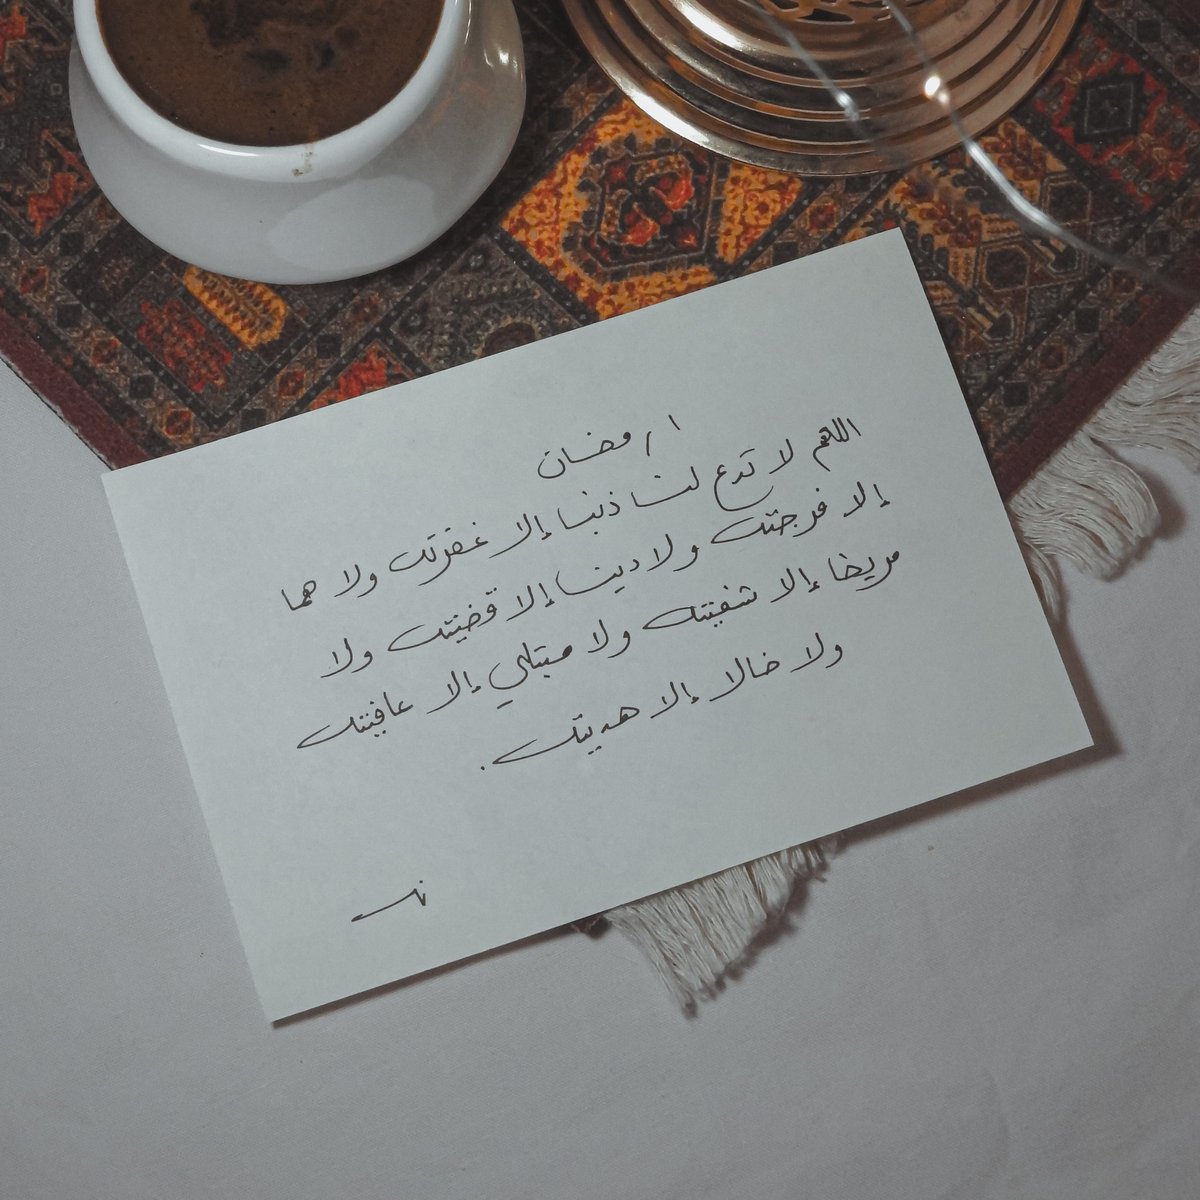 ١ رمضان
اللهم لا تدع لنا ذنبا إلا غفرته ولا هما
إلا فرجته ولا دينا إلا قضيته ولا
مريضا إلا شفيته ولا مبتلى إلا عافيته
ولا ضالا إلا هديته .